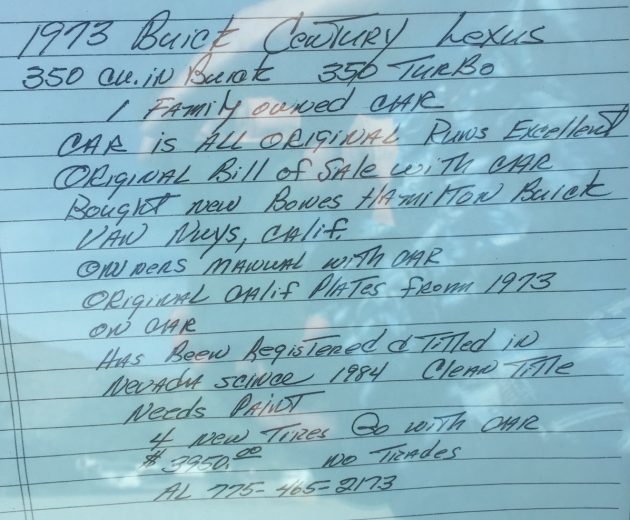 1973 Buick Century Lexus
350 cu.in Buick 350 Turbo
1 Family owned car
Car is all original Runs Excellent
Original Bill of Sale with car
Bought new Bowes Hamilton Buick
Van Nuys, Calif.
Owners manual with car
Original Calif Plates from 1973
on car
Has Been Registered & Titled in
Nevada scince 1984 Clean Title
Needs Paint
4 new Tires Go with car
$ 3950.00 no Trades
AL 775-465-2173